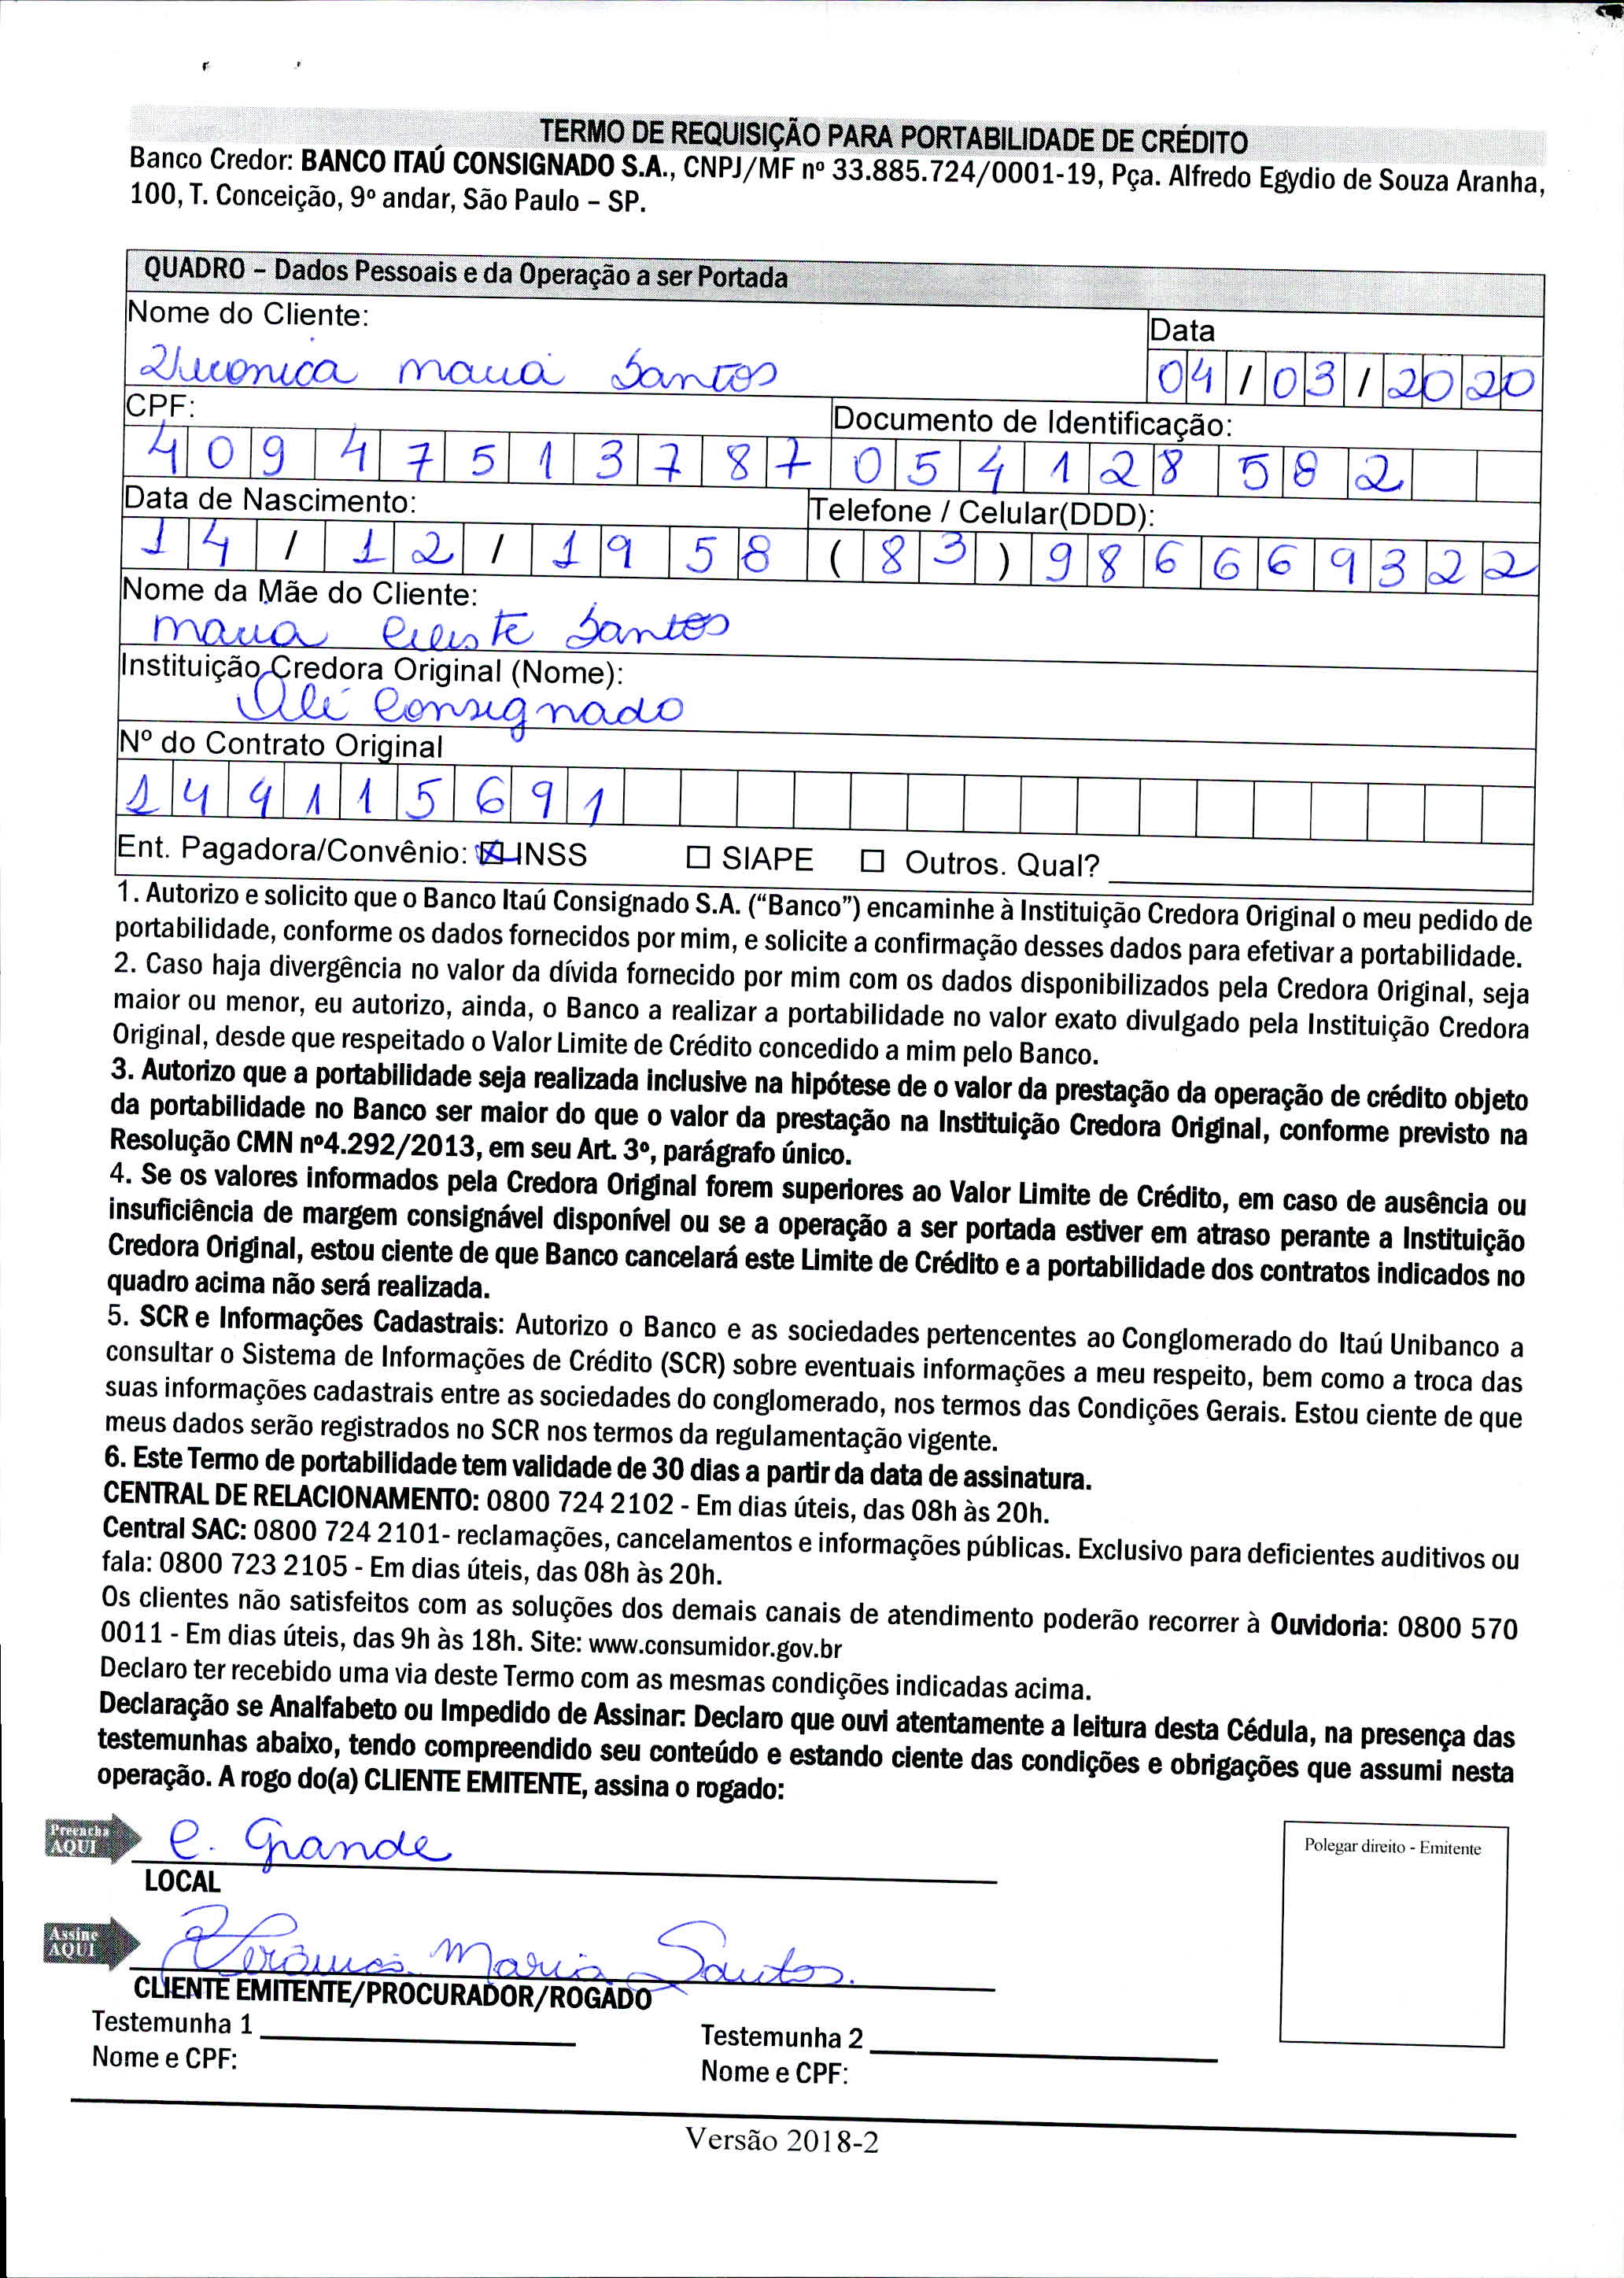 TERMO DE REQUISIÇÃO PARA PORTABILIDADE DE CRÉDITO
Banco Credor: BANCO ITAÚ CONSIGNADO S.A., CNPJ/MF nº 33.885.724/0001-19, Pça. Alfredo Egydio de Souza Aranha,
100, T. Conceição, 9º andar, São Paulo – SP.
QUADRO – Dados Pessoais e da Operação a ser Portada
Nome do Cliente:
Veronica Maria Santos
Data
04/03/2020
CPF:
40947513787
Documento de Identificação:
054128582
Data de Nascimento:
14/12/1958
Telefone / Celular(DDD):
(83)986669322
Nome da Mãe do Cliente:
Maria Celeste Santos
Instituição Credora Original (Nome):
Olé Consignado
Nº do Contrato Original
144115691
Ent. Pagadora/Convênio: ☒ INSS ☐ SIAPE ☐ Outros. Qual?
1. Autorizo e solicito que o Banco Itaú Consignado S.A. (“Banco”) encaminhe à Instituição Credora Original o meu pedido de
portabilidade, conforme os dados fornecidos por mim, e solicite a confirmação desses dados para efetivar a portabilidade.
2. Caso haja divergência no valor da dívida fornecido por mim com os dados disponibilizados pela Credora Original, seja
maior ou menor, eu autorizo, ainda, o Banco a realizar a portabilidade no valor exato divulgado pela Instituição Credora
Original, desde que respeitado o Valor Limite de Crédito concedido a mim pelo Banco.
3. Autorizo que a portabilidade seja realizada inclusive na hipótese de o valor da prestação da operação de crédito objeto
da portabilidade no Banco ser maior do que o valor da prestação na Instituição Credora Original, conforme previsto na
Resolução CMN nº4.292/2013, em seu Art. 3º, parágrafo único.
4. Se os valores informados pela Credora Original forem superiores ao Valor Limite de Crédito, em caso de ausência ou
insuficiência de margem consignável disponível ou se a operação a ser portada estiver em atraso perante a Instituição
Credora Original, estou ciente de que Banco cancelará este Limite de Crédito e a portabilidade dos contratos indicados no
quadro acima não será realizada.
5. SCR e Informações Cadastrais: Autorizo o Banco e as sociedades pertencentes ao Conglomerado do Itaú Unibanco a
consultar o Sistema de Informações de Crédito (SCR) sobre eventuais informações a meu respeito, bem como a troca das
suas informações cadastrais entre as sociedades do conglomerado, nos termos das Condições Gerais. Estou ciente de que
meus dados serão registrados no SCR nos termos da regulamentação vigente.
6. Este Termo de portabilidade tem validade de 30 dias a partir da data de assinatura.
CENTRAL DE RELACIONAMENTO: 0800 724 2102 - Em dias úteis, das 08h às 20h.
Central SAC: 0800 724 2101- reclamações, cancelamentos e informações públicas. Exclusivo para deficientes auditivos ou
fala: 0800 723 2105 - Em dias úteis, das 08h às 20h.
Os clientes não satisfeitos com as soluções dos demais canais de atendimento poderão recorrer à Ouvidoria: 0800 570
0011 - Em dias úteis, das 9h às 18h. Site: www.consumidor.gov.br
Declaro ter recebido uma via deste Termo com as mesmas condições indicadas acima.
Declaração se Analfabeto ou Impedido de Assinar: Declaro que ouvi atentamente a leitura desta Cédula, na presença das
testemunhas abaixo, tendo compreendido seu conteúdo e estando ciente das condições e obrigações que assumi nesta
operação. A rogo do(a) CLIENTE EMITENTE, assina o rogado:
Preencha
AQUI
C. Grande
LOCAL
Polegar direito - Emitente
Assine
AQUI
Verônica Maria Santos.
CLIENTE EMITENTE/PROCURADOR/ROGADO
Testemunha 1
Testemunha 2
Nome e CPF:
Nome e CPF:
Versão 2018-2